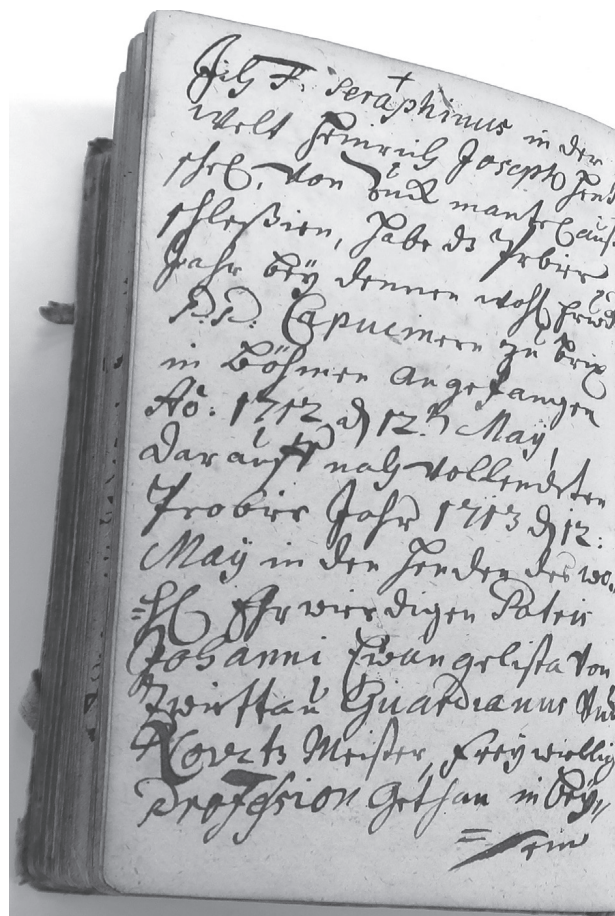 Ich F. Seraphinus in der
Welt Heinrich Joseph Hent
schel, von Zuck mantel auß
schleßien, habe dz Probier
Jahr beÿ dennen wohl Ehrwd
P.P. Capucinern zu Brix
in Böhmen angefangen
Aõ: 1712 dh 12.th Maÿ,
darauff nach vollendeten
Probier Jahr 1713 dh 12:
Maÿ in den Henden des wo
=hl Ehrwierdigen Patris
Johanni Ewangelista von
Zwittau Guardianus und
Novitz Meister, freÿ willig
Profession gethan in beÿ//
=sein